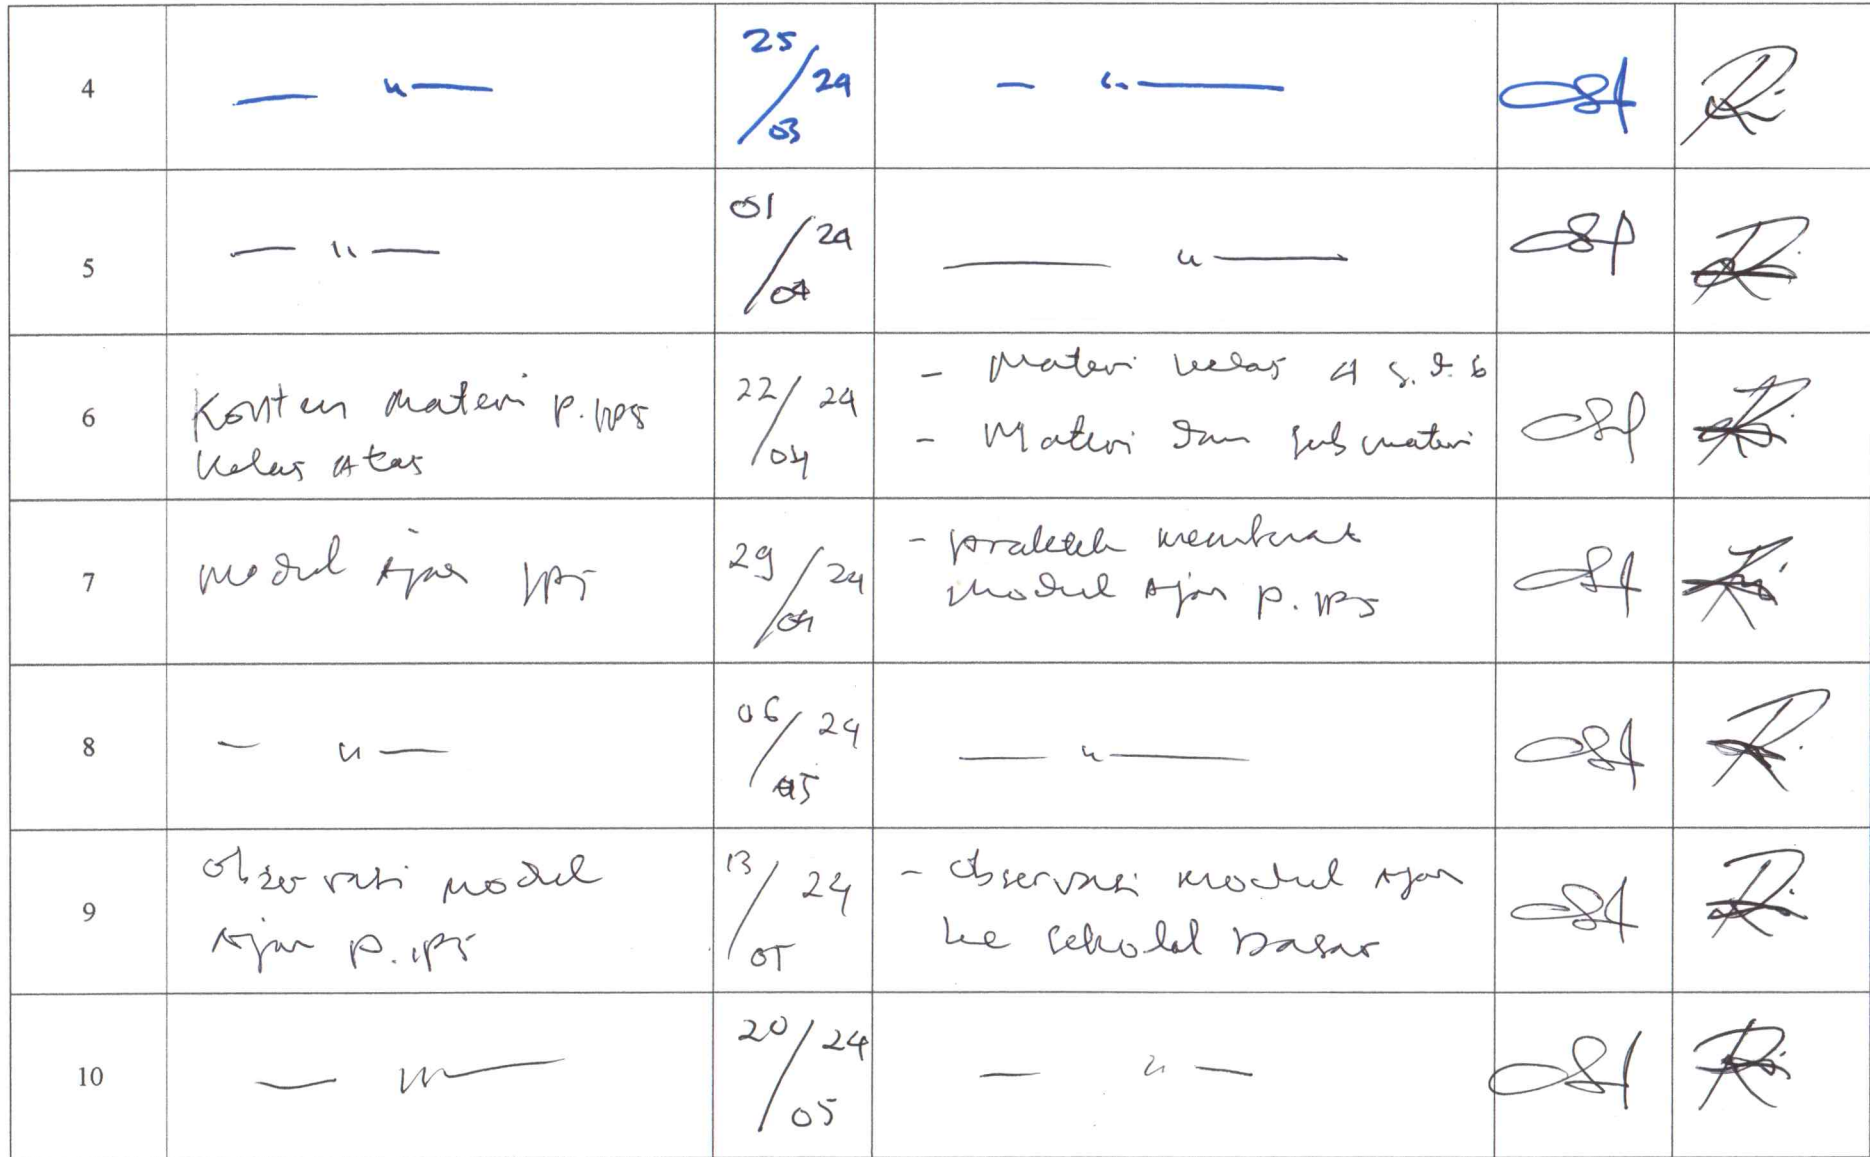 4 — " — 25/03 24 — " —
5 — " — 01/04 24 — " —
6 Konten Materi P. IPS
Kelas Atas
22/04 24
- Materi kelas 4 s.d. 6
- Materi dan sub materi
7 Modul Ajar IPS 29/04 24
- praktek membuat
Modul Ajar P. IPS
8 — " — 06/05 24 — " —
9 Observasi Modul
Ajar P. IPS
13/05 24
- Observasi Modul Ajar
ke sekolah Dasar
10 — " — 20/05 24 — " —